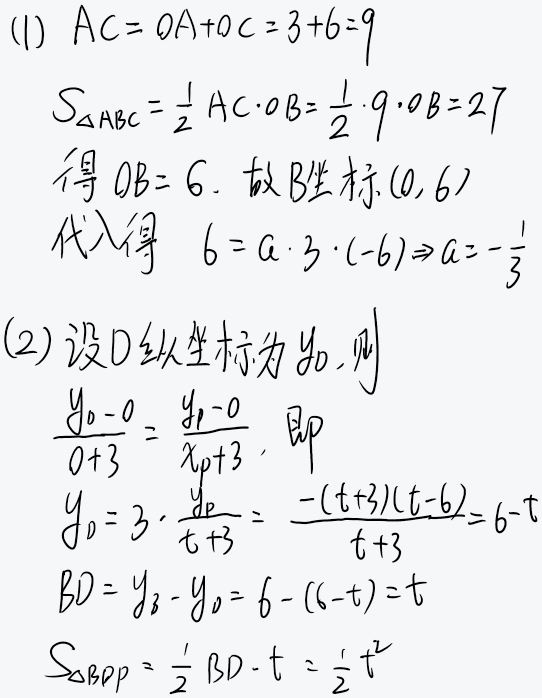 (1) AC = OA+OC = 3+6=9
S△ABC = 1/2 AC·OB = 1/2·9·OB = 27
得 OB = 6. 故B坐标(0,6)
代入得 6 = a·3·(-6) ⇒ a = -1/3
(2) 设D纵坐标为 y_D, 则
(y_D-0)/(0+3) = (y_P-0)/(x_P+3), 即
y_D = 3·y_P/(t+3) = -(t+3)(t-6)/(t+3) = 6-t
BD = y_B - y_D = 6-(6-t) = t
S△BDP = 1/2 BD·t = 1/2 t²